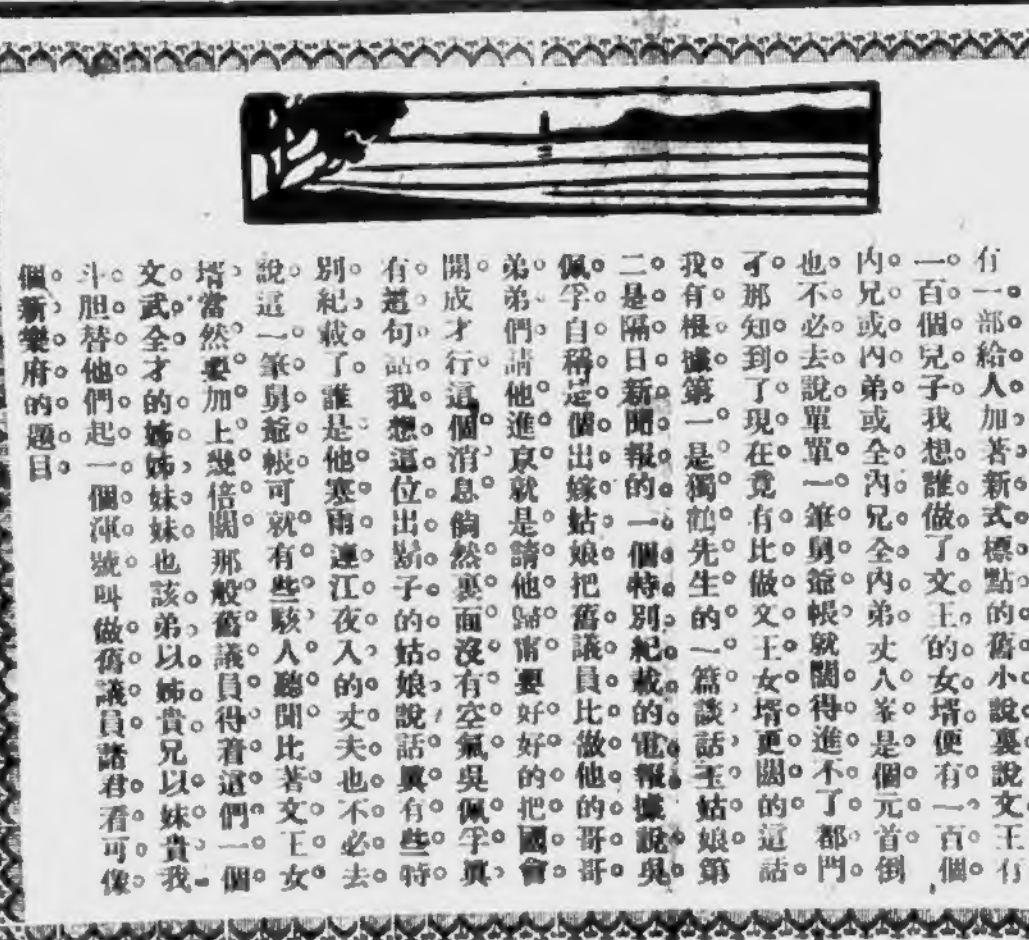 有一部給人加著新式標點的舊小說裏說文王有
一百個兒子我想誰做了文王的女壻便有一百個
內兄或內弟或全內兄全內弟丈人峯是個元首倒
也不必去說單單一筆舅爺帳就關得進不了都門
了那知到了現在竟有比做文王女壻更闊的這話
我有根據第一是獨鶴先生的一篇談話玉姑娘第
二是隔日新聞報的一個特別紀載的電報據說吳
佩孚自稱是個出嫁姑娘把舊議員比做他的哥哥
弟弟們請他進京就是請他歸甯要好好的把國會
開成才行這個消息倘然裏面沒有空氣吳佩孚眞
有這句話我想這位出嫁子的姑娘說話眞有些特
別紀載了誰是他寒雨連江夜入的丈夫也不必去
說這一筆舅爺帳可就有些駭人聽聞比著文王女
壻當然要加上幾倍闊那般舊議員得着這們一個
文武全才的姊姊妹妹也該弟以姊貴兄以妹貴我
斗胆替他們起一個渾號叫做舊議員諸君看可像
個新樂府的題目